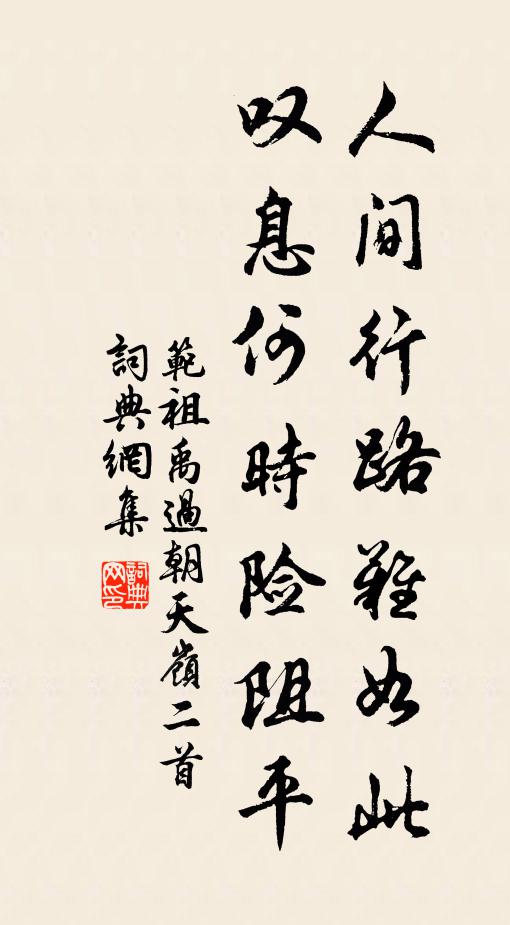 人间行路難如此
叹息何時险阻平
範祖禹過朝天嶺二首
詞典網集
詞典网印